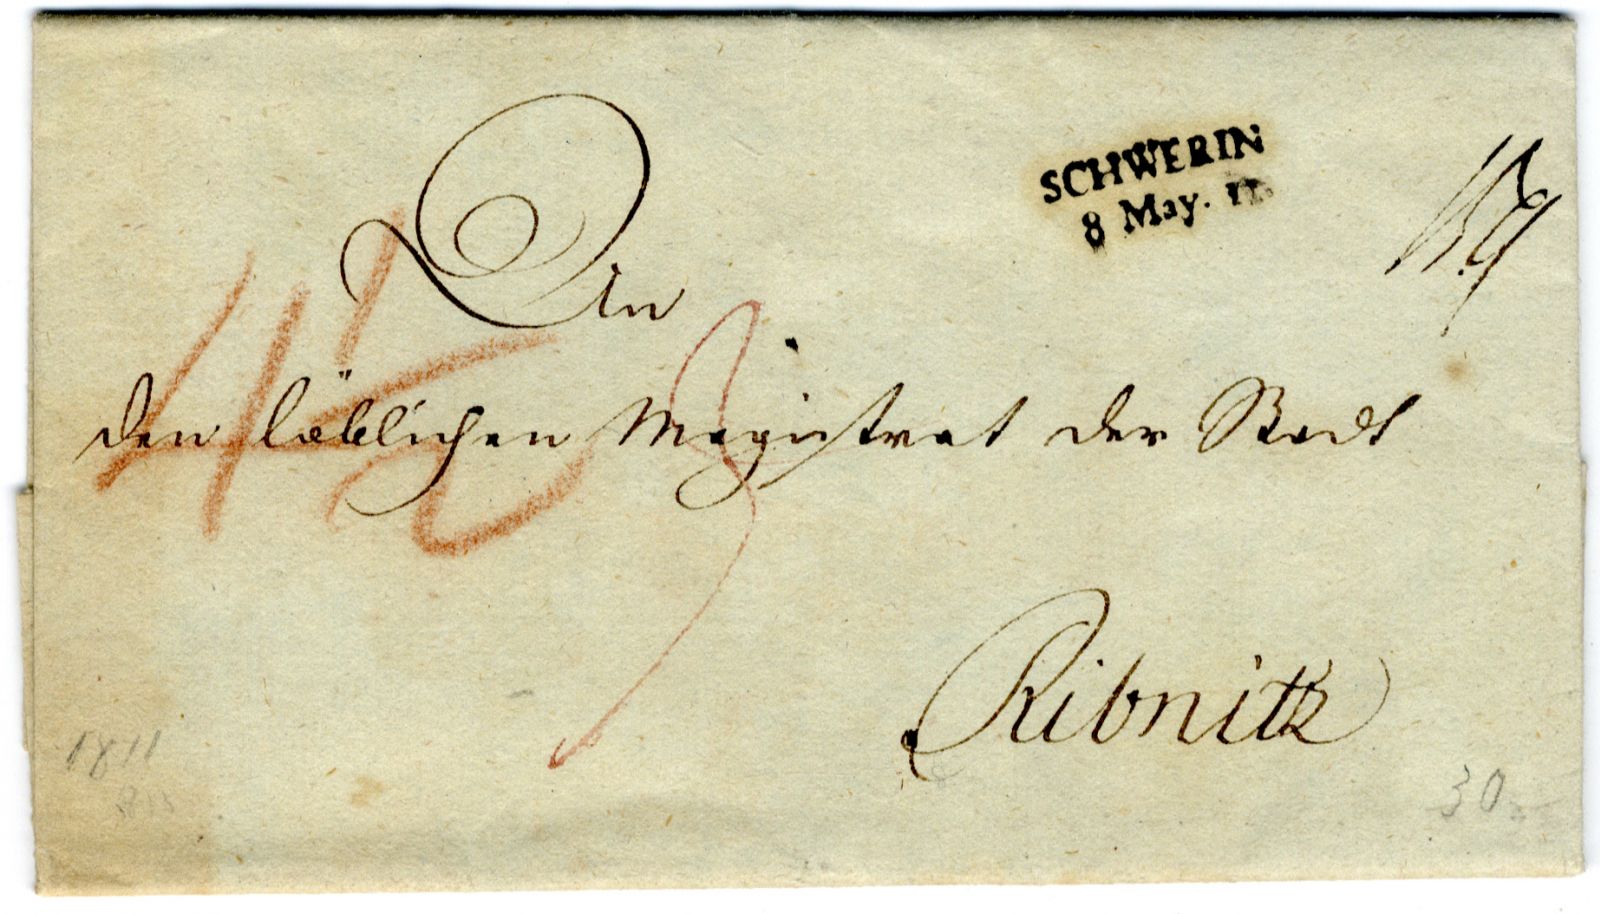 SCHWERIN
8 May. 11
An
den löblichen Magistrat der Stadt
Ribnitz
1811
30